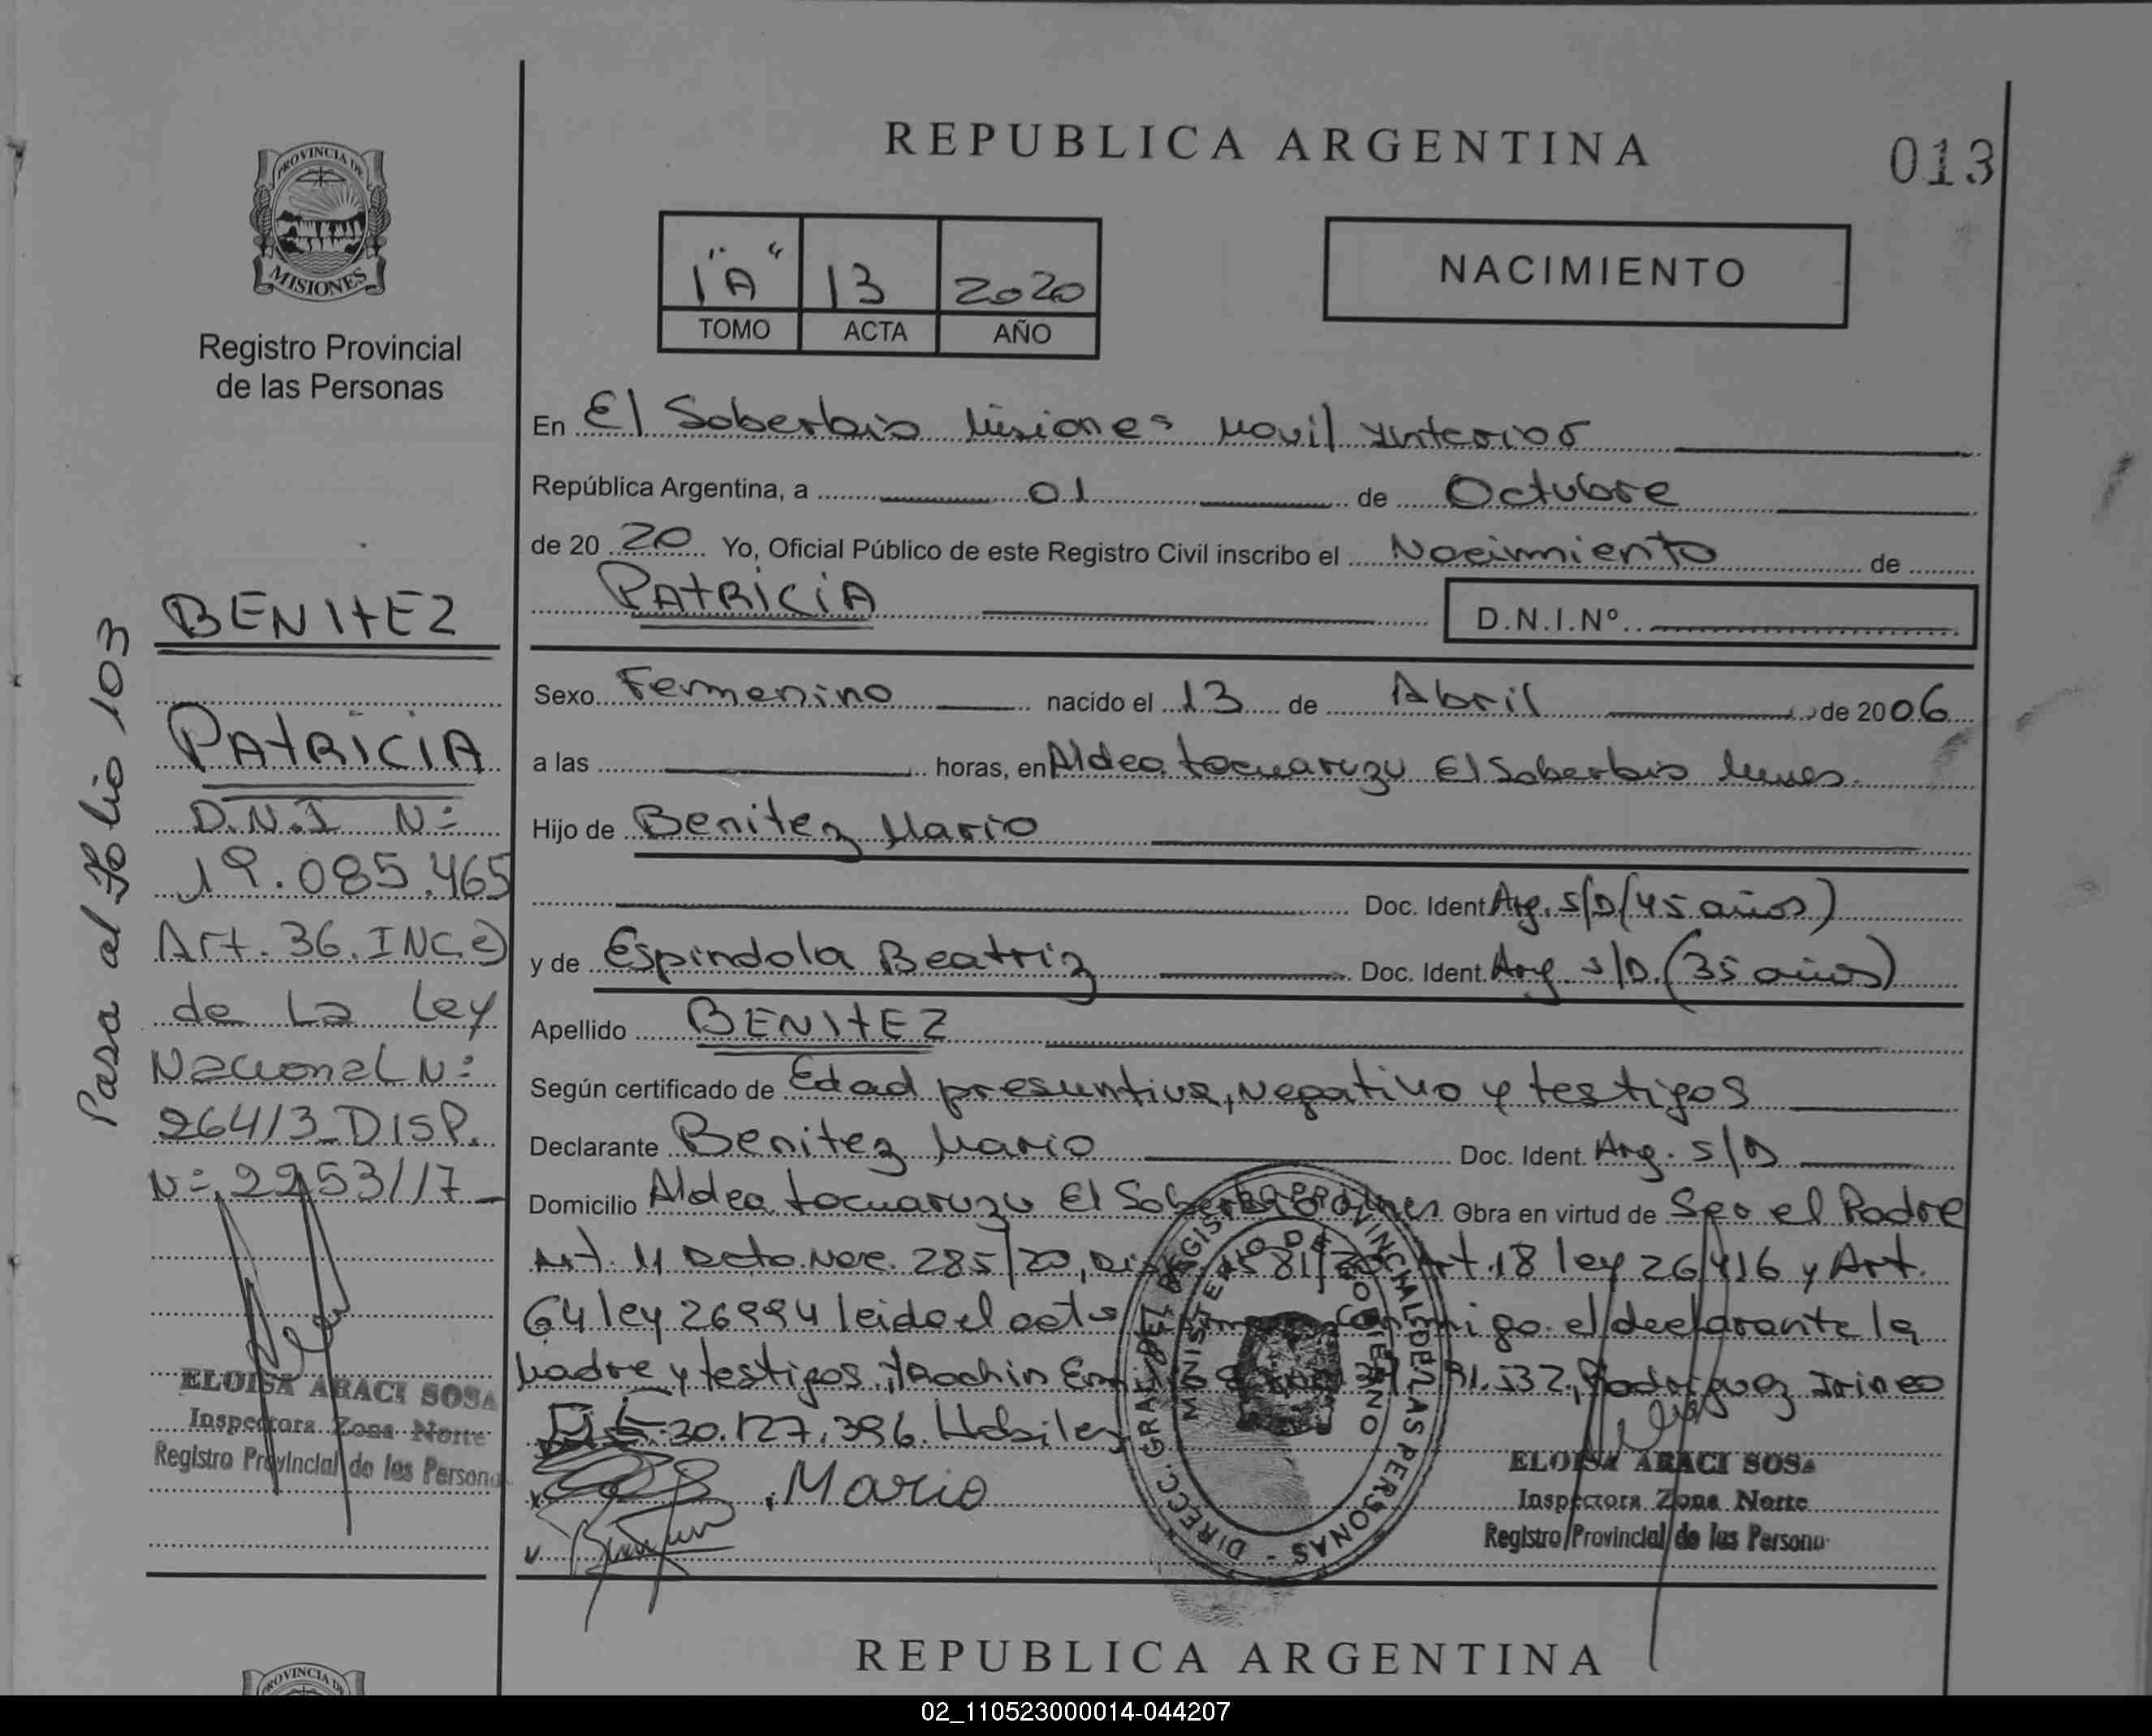 PROVINCIA DE
MISIONES
Registro Provincial
de las Personas
Pasa al Folio 103
BENITEZ
PATRICIA
D.N.I Nº
19.085.465
Art. 36. INC. e)
de La Ley
Nacional Nº
26413 DISP.
Nº 2253/17
ELOISA ARACI SOSA
Inspectora Zona Norte
Registro Provincial de las Persona
REPUBLICA ARGENTINA
013
1 "A" 13 2020
TOMO ACTA AÑO
NACIMIENTO
En El Soberbio Misiones Movil Interior
República Argentina, a 01 de Octubre
de 20 20 Yo, Oficial Público de este Registro Civil inscribo el Nacimiento de
PATRICIA D.N.I.Nº
Sexo Femenino nacido el 13 de Abril de 2006
a las horas, en Aldea tacuaruzu El Soberbio Mnes.
Hijo de Benitez Mario
Doc. Ident Arg. S/D (45 años)
y de Espindola Beatriz Doc. Ident. Arg. S/D. (35 años)
Apellido BENITEZ
Según certificado de Edad presuntiva, Negativo y testigos
Declarante Benitez Mario Doc. Ident. Arg. S/D
Domicilio Aldea tacuaruzu El Soberbio Mnes Obra en virtud de Ser el Padre
Art. 11 Dcto. Nac. 285/20, 581/20 Art. 18 ley 26416 y Art.
64 ley 26994 leida el acta conmigo el declarante la
Madre y testigos, 532, Rodriguez Irineo
30.127.396. Habiles
Mario
DIRECC. GRAL. DEL REGISTRO PROVINCIAL DE LAS PERSONAS -
MINISTERIO DE GOBIERNO
ELOISA ARACI SOSA
Inspectora Zona Norte
Registro Provincial de las Persona
REPUBLICA ARGENTINA
PROVINCIA DE
02_110523000014-044207